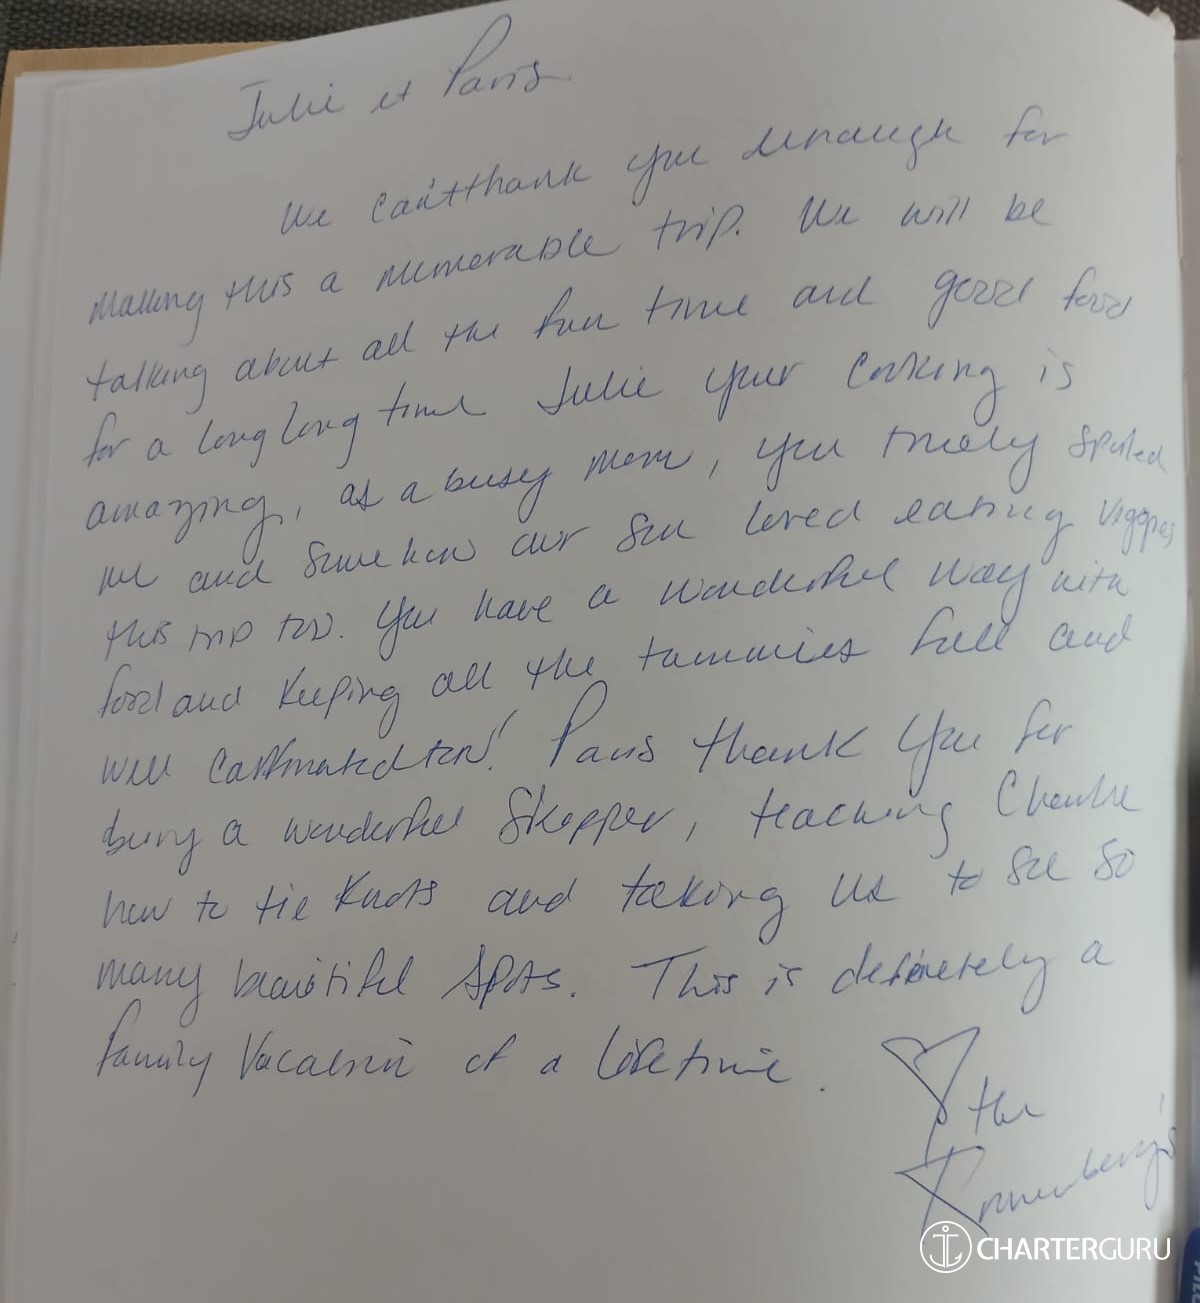 Julie et Paris
We can't thank you enough for
making this a memorable trip. We will be
talking about all the fun time and good food
for a long long time Julie your cooking is
amazing, as a busy mom, you truely spoiled
me and somehow our son loved eating veggies
this trip too. You have a wonderful way with
food and keeping all the tummies full and
well too! Paris thank you for
being a wonderful Skipper, teaching Charlie
how to tie knots and taking us to see so
many beautiful spots. This is definetely a
family Vacation of a lifetime.
the
CHARTERGURU